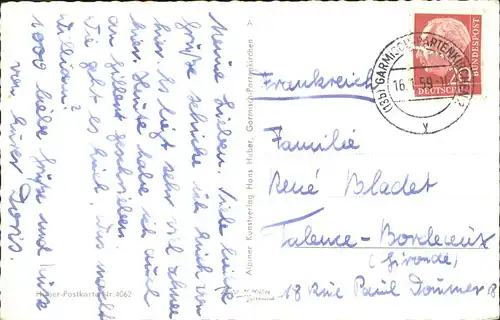 Meine Lieben. Viele liebe
Grüße schicke ich Euch von
hier. Es liegt sehr viel Schnee
hier. Heute habe ich auch
an Gilbert geschrieben.
Wie geht es Euch, was macht
Lillian?
1000 liebe Grüße und Küße
von Eurer Doris.
Huber-Postkarte Nr. 4062
Alpiner Kunstverlag Hans Huber, Garmisch-Partenkirchen
A
(13b) GARMISCH-PARTENKIRCHEN
16.1.59
y
DEUTSCHE
BUNDESPOST
20
Frankreich
Familie
René Bladet
Talence-Bordeaux
(Gironde)
18 Rue Paul Doumer